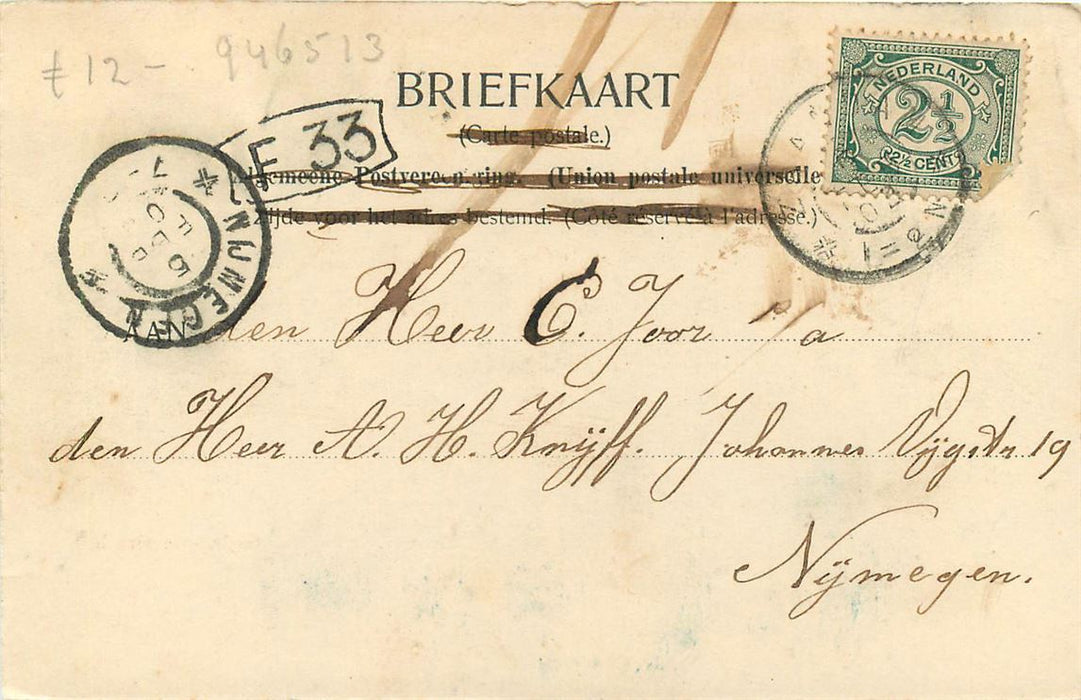 £ 12 - 946513
BRIEFKAART
(Carte postale.)
Algemeene Postvereeniging. (Union postale universelle
Zijde voor het adres bestemd. (Côté réservé à l'adresse.)
NEDERLAND
2½
2½ CENT
F 33
NIJMEGEN
AAN den Heer C. Joor a
den Heer A. H. Knijff. Johannes Vijgstr 19
Nijmegen.